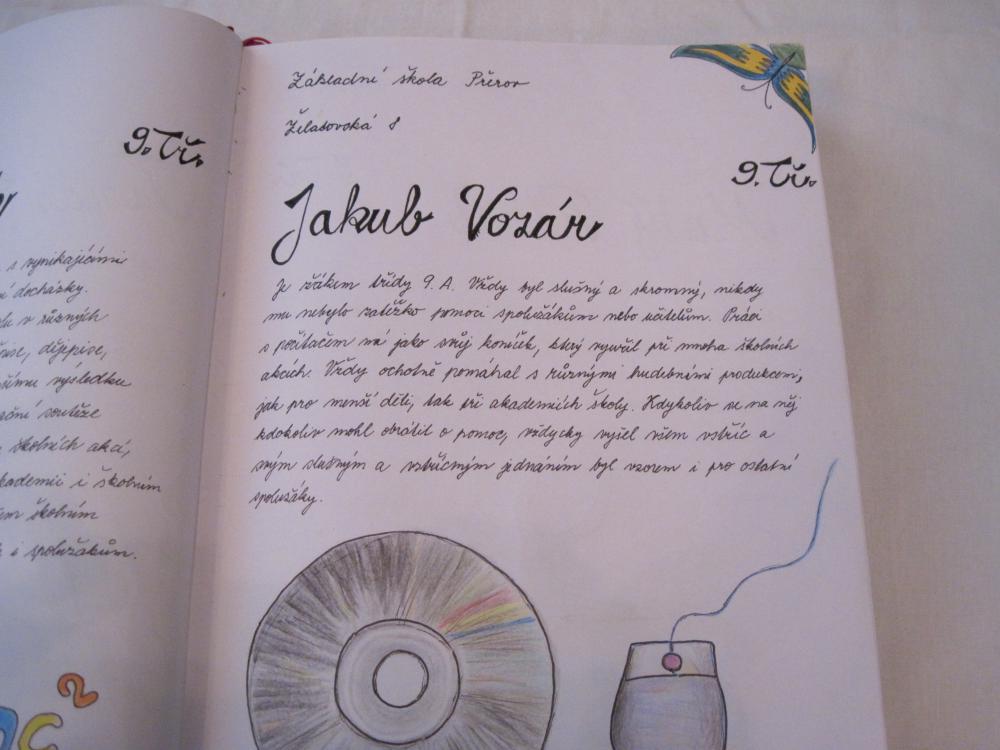 9. Tř.
s vynikajícími
í docházky.
v různých
dějepise,
výsledku
soutěže
školních akcí,
akademií i školním
školním
i spolužákům.
c²
Základní škola Přerov
Želatovská 8
9. Tř.
Jakub Vozár
Je žákem třídy 9. A. Vždy byl slušný a skromný, nikdy
mu nebylo zatěžko pomoci spolužákům nebo učitelům. Práci
s počítačem má jako svůj koníček, který využil při mnoha školních
akcích. Vždy ochotně pomáhal s různými hudebními produkcemi,
jak pro menší děti, tak při akademiích školy. Kdykoliv se na něj
kdokoliv mohl obrátit o pomoc, vždycky vyšel všem vstříc a
svým slušným a vstřícným jednáním byl vzorem i pro ostatní
spolužáky.